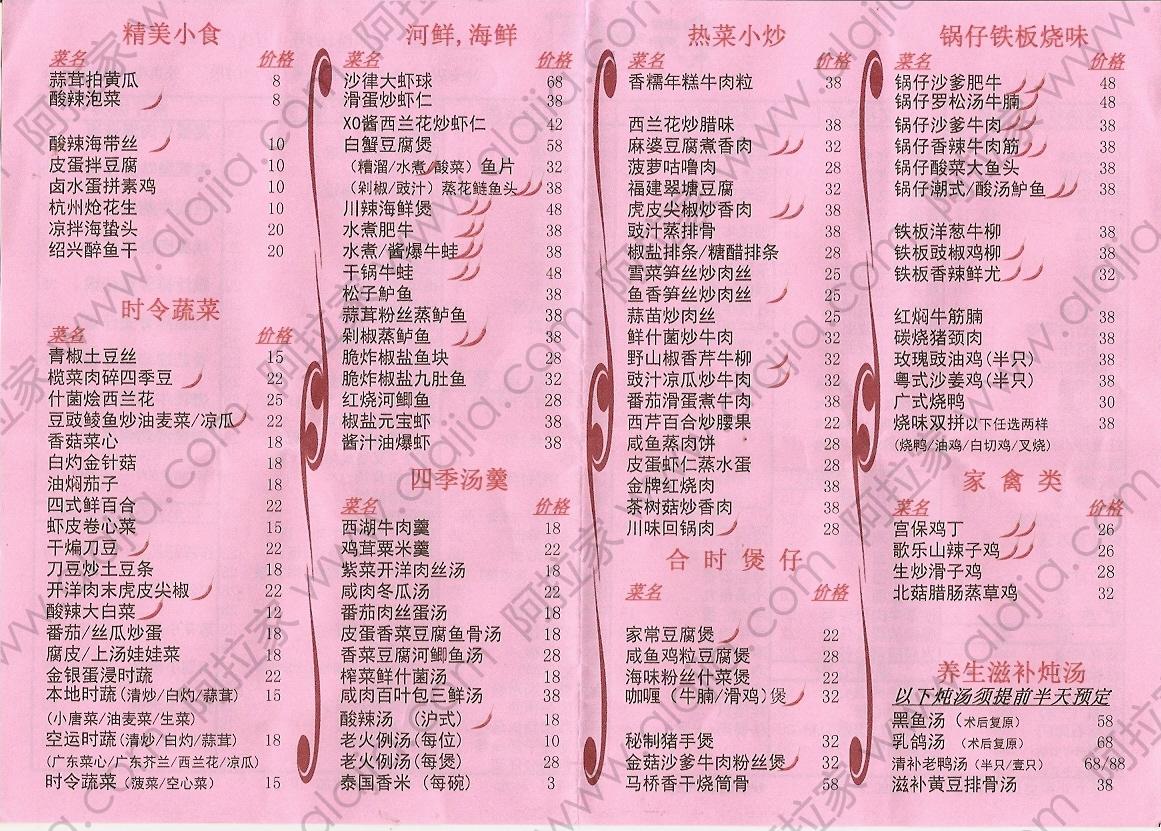 精美小食
菜名 价格
蒜茸拍黄瓜 8
酸辣泡菜 8
酸辣海带丝 10
皮蛋拌豆腐 10
卤水蛋拼素鸡 10
杭州炝花生 10
凉拌海蛰头 20
绍兴醉鱼干 20
时令蔬菜
菜名 价格
青椒土豆丝 15
榄菜肉碎四季豆 22
什菌烩西兰花 25
豆豉鲮鱼炒油麦菜/凉瓜 22
香菇菜心 18
白灼金针菇 18
油焖茄子 18
四式鲜百合 22
虾皮卷心菜 15
干煸刀豆 22
刀豆炒土豆条 18
开洋肉末虎皮尖椒 22
酸辣大白菜 12
番茄/丝瓜炒蛋 18
腐皮/上汤娃娃菜 18
金银蛋浸时蔬 22
本地时蔬(清炒/白灼/蒜茸) 15
(小唐菜/油麦菜/生菜)
空运时蔬(清炒/白灼/蒜茸) 18
(广东菜心/广东芥兰/西兰花/凉瓜)
时令蔬菜(菠菜/空心菜) 15
河鲜,海鲜
菜名 价格
沙律大虾球 68
滑蛋炒虾仁 38
XO酱西兰花炒虾仁 42
白蟹豆腐煲 58
(糟溜/水煮/酸菜)鱼片 32
(剁椒/豉汁)蒸花鲢鱼头 38
川辣海鲜煲 48
水煮肥牛 38
水煮/酱爆牛蛙 38
干锅牛蛙 48
松子鲈鱼 38
蒜茸粉丝蒸鲈鱼 38
剁椒蒸鲈鱼 38
脆炸椒盐鱼块 28
脆炸椒盐九肚鱼 32
红烧河鲫鱼 28
椒盐元宝虾 38
酱汁油爆虾 38
四季汤羹
菜名 价格
西湖牛肉羹 18
鸡茸粟米羹 22
紫菜开洋肉丝汤 18
咸肉冬瓜汤 22
番茄肉丝蛋汤 18
皮蛋香菜豆腐鱼骨汤 18
香菜豆腐河鲫鱼汤 28
榨菜鲜什菌汤 18
咸肉百叶包三鲜汤 38
酸辣汤 (沪式) 18
老火例汤(每位) 10
老火例汤(每煲) 28
泰国香米 (每碗) 3
热菜小炒
菜名 价格
香糯年糕牛肉粒 38
西兰花炒腊味 38
麻婆豆腐煮香肉 32
菠萝咕噜肉 28
福建翠塘豆腐 32
虎皮尖椒炒香肉 38
豉汁蒸排骨 38
椒盐排条/糖醋排条 28
雪菜笋丝炒肉丝 25
鱼香笋丝炒肉丝 25
蒜苗炒肉丝 25
鲜什菌炒牛肉 28
野山椒香芹牛柳 32
豉汁凉瓜炒牛肉 32
番茄滑蛋煮牛肉 38
西芹百合炒腰果 22
咸鱼蒸肉饼 28
皮蛋虾仁蒸水蛋 28
金牌红烧肉 38
茶树菇炒香肉 38
川味回锅肉 28
合时煲仔
菜名 价格
家常豆腐煲 22
咸鱼鸡粒豆腐煲 28
海味粉丝什菜煲 22
咖喱 (牛腩/滑鸡)煲 32
秘制猪手煲 32
金菇沙爹牛肉粉丝煲 32
马桥香干烧筒骨 58
锅仔铁板烧味
菜名 价格
锅仔沙爹肥牛 48
锅仔罗松汤牛腩 48
锅仔沙爹牛肉 38
锅仔香辣牛肉筋 38
锅仔酸菜大鱼头 38
锅仔潮式/酸汤鲈鱼 38
铁板洋葱牛柳 38
铁板豉椒鸡柳 38
铁板香辣鲜尤 32
红焖牛筋腩 38
碳烧猪颈肉 38
玫瑰豉油鸡(半只) 38
粤式沙姜鸡(半只) 38
广式烧鸭 30
烧味双拼以下任选两样 38
(烧鸭/油鸡/白切鸡/叉烧)
家禽类
菜名 价格
宫保鸡丁 26
歌乐山辣子鸡 26
生炒滑子鸡 28
北菇腊肠蒸草鸡 32
养生滋补炖汤
以下炖汤须提前半天预定
黑鱼汤 (术后复原) 58
乳鸽汤 (术后复原) 68
清补老鸭汤 (半只/壹只) 68/88
滋补黄豆排骨汤 38
阿拉家 www.alajia.com